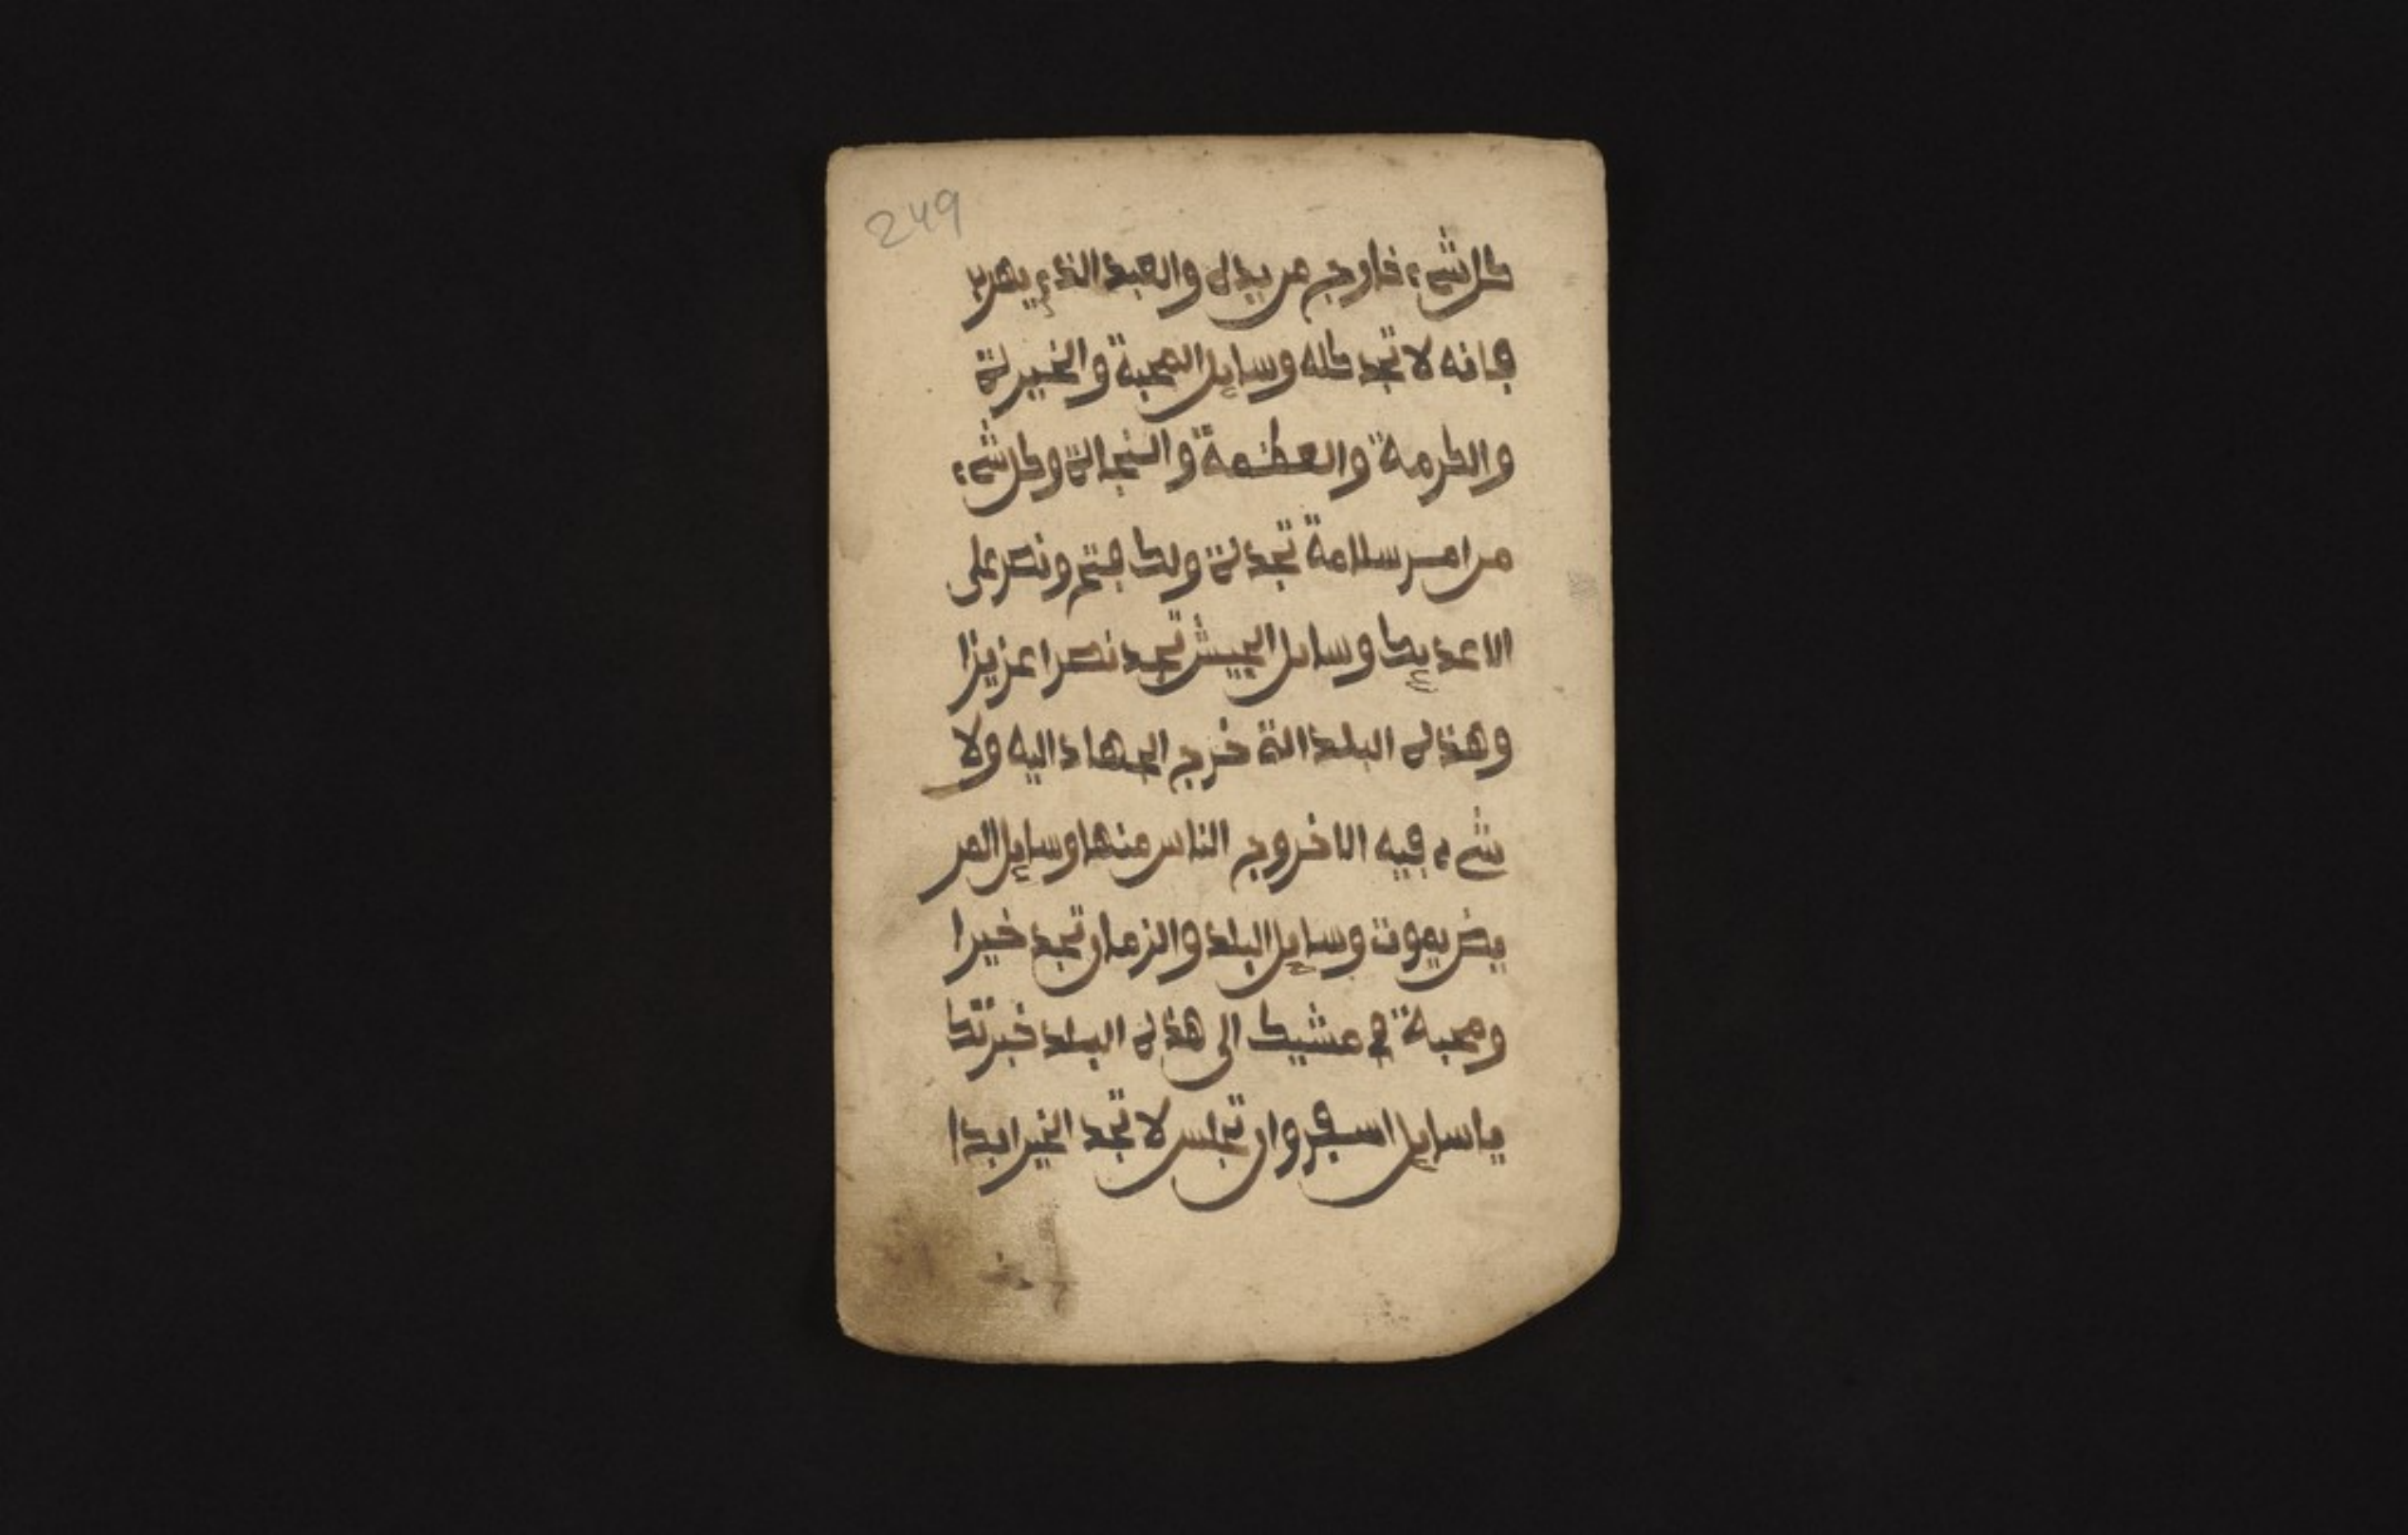 249
كل شيء خارج من يده والعبد الذي يهرب
فانه لا تجد كله وسايل المحبة والخيرة
والكرمة والعظمة والنجاة وكل شيء
من امر سلامة تجدة ولك فتح ونصر على
الاعديك وسايل الجيش تجد نصرا عزيزا
وهذه البلد التي خرج الجهاد اليه ولا
شيء فيه الا خروج الناس منها وسايل المر
يض يموت وسايل البلد والزمان تجد خيرا
ومحبة في مشيك الى هذه البلد خبرتك
يا سايل اسفر وان تجلس لا تجد الخير ابدا